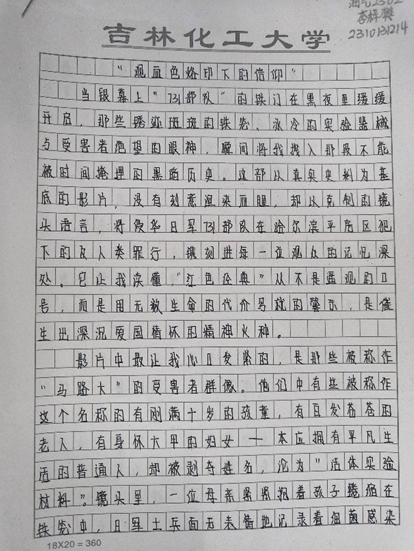 油气2302
2310131214
吉林化工大学
“观血色烙印下的信仰”
当银幕上“731部队”的铁门在黑夜里缓缓
开启，那些锈迹斑斑的铁笼、冰冷的实验器械
与受害者绝望的眼神，瞬间将我拽入那段不能
被时间掩埋的黑暗历史。这部以真实史料为基
底的影片，没有刻意渲染血腥，却以克制的镜
头语言，将侵华日军731部队在哈尔滨平房区犯
下的反人类罪行，镌刻进每一位观众的记忆深
处。它让我读懂，“红色经典”从不是遥远的口
号，而是用无数生命的代价铸就的警示，是催
生出深沉爱国情怀的精神火种。
影片中最让我心口发紧的，是那些被称作
“马路大”的受害者群像。他们中有些被称作
这个名称的有刚满十岁的孩童，有白发苍苍的
老人，有身怀六甲的妇女——本应拥有平凡生
活的普通人，却被剥夺姓名，沦为“活体实验
材料”。镜头里，一位母亲紧紧抱着孩子蜷缩在
铁笼中，日军士兵面无表情地记录着细菌感染
18X20=360